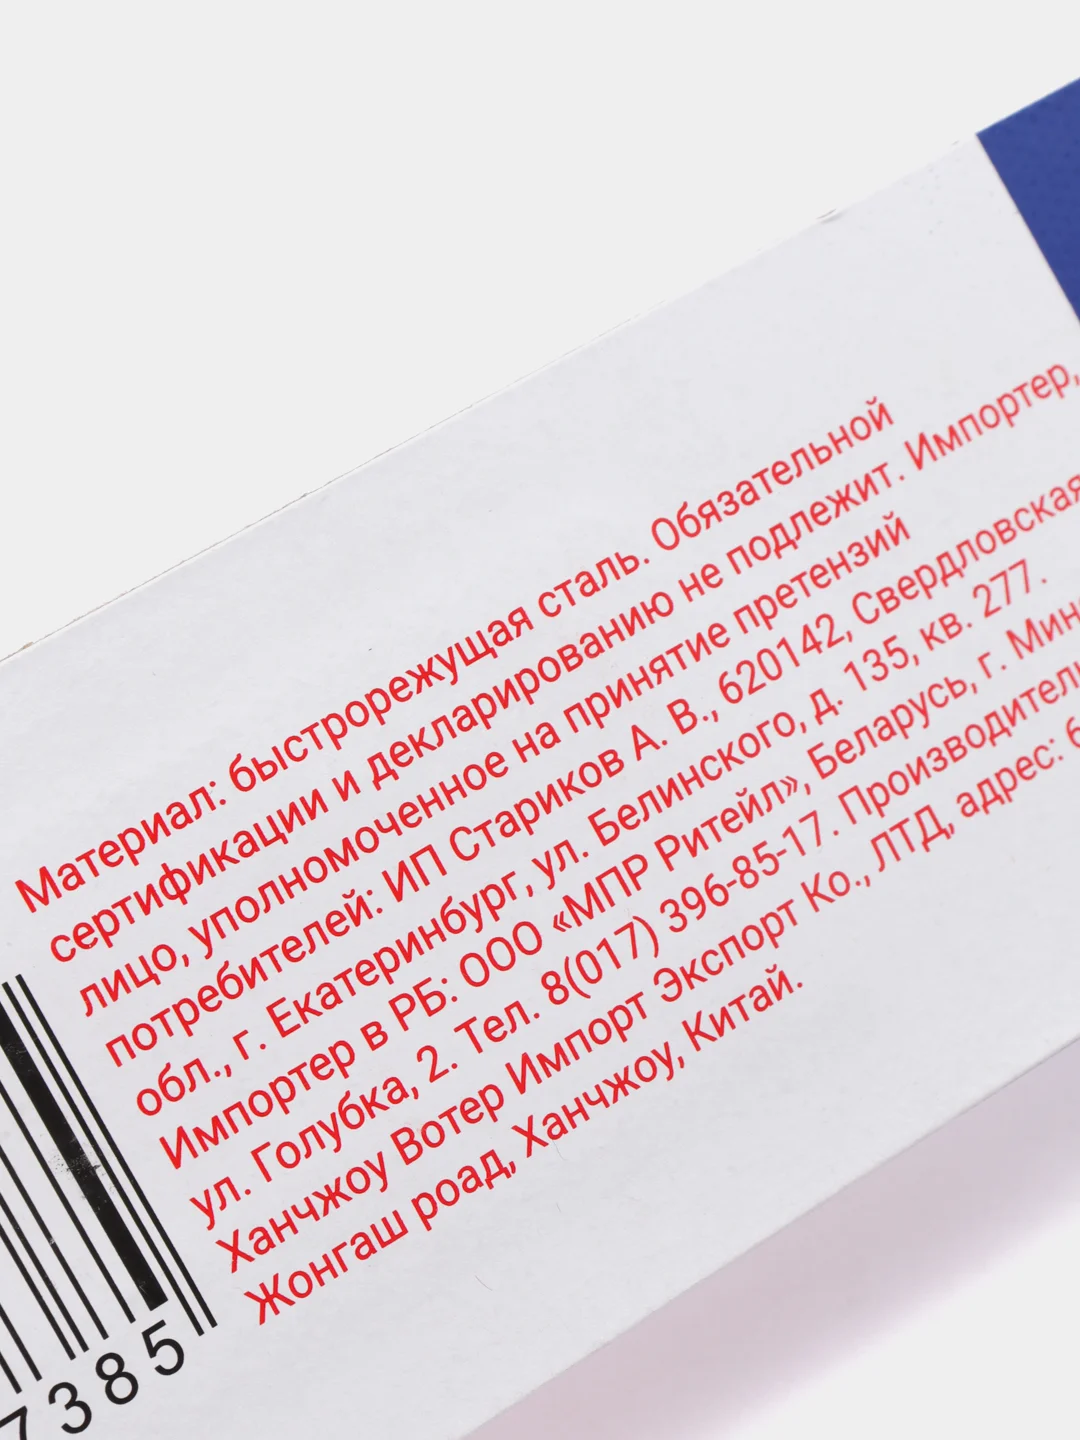 Материал: быстрорежущая сталь. Обязательной
сертификации и декларированию не подлежит. Импортер,
лицо, уполномоченное на принятие претензий
потребителей: ИП Стариков А. В., 620142, Свердловская
обл., г. Екатеринбург, ул. Белинского, д. 135, кв. 277.
Импортер в РБ: ООО «МПР Ритейл», Беларусь, г.
ул. Голубка, 2. Тел. 8(017) 396-85-17.
Ханчжоу Вотер Импорт Экспорт Ко., ЛТД, адрес:
Жонгаш роад, Ханчжоу, Китай.
7385